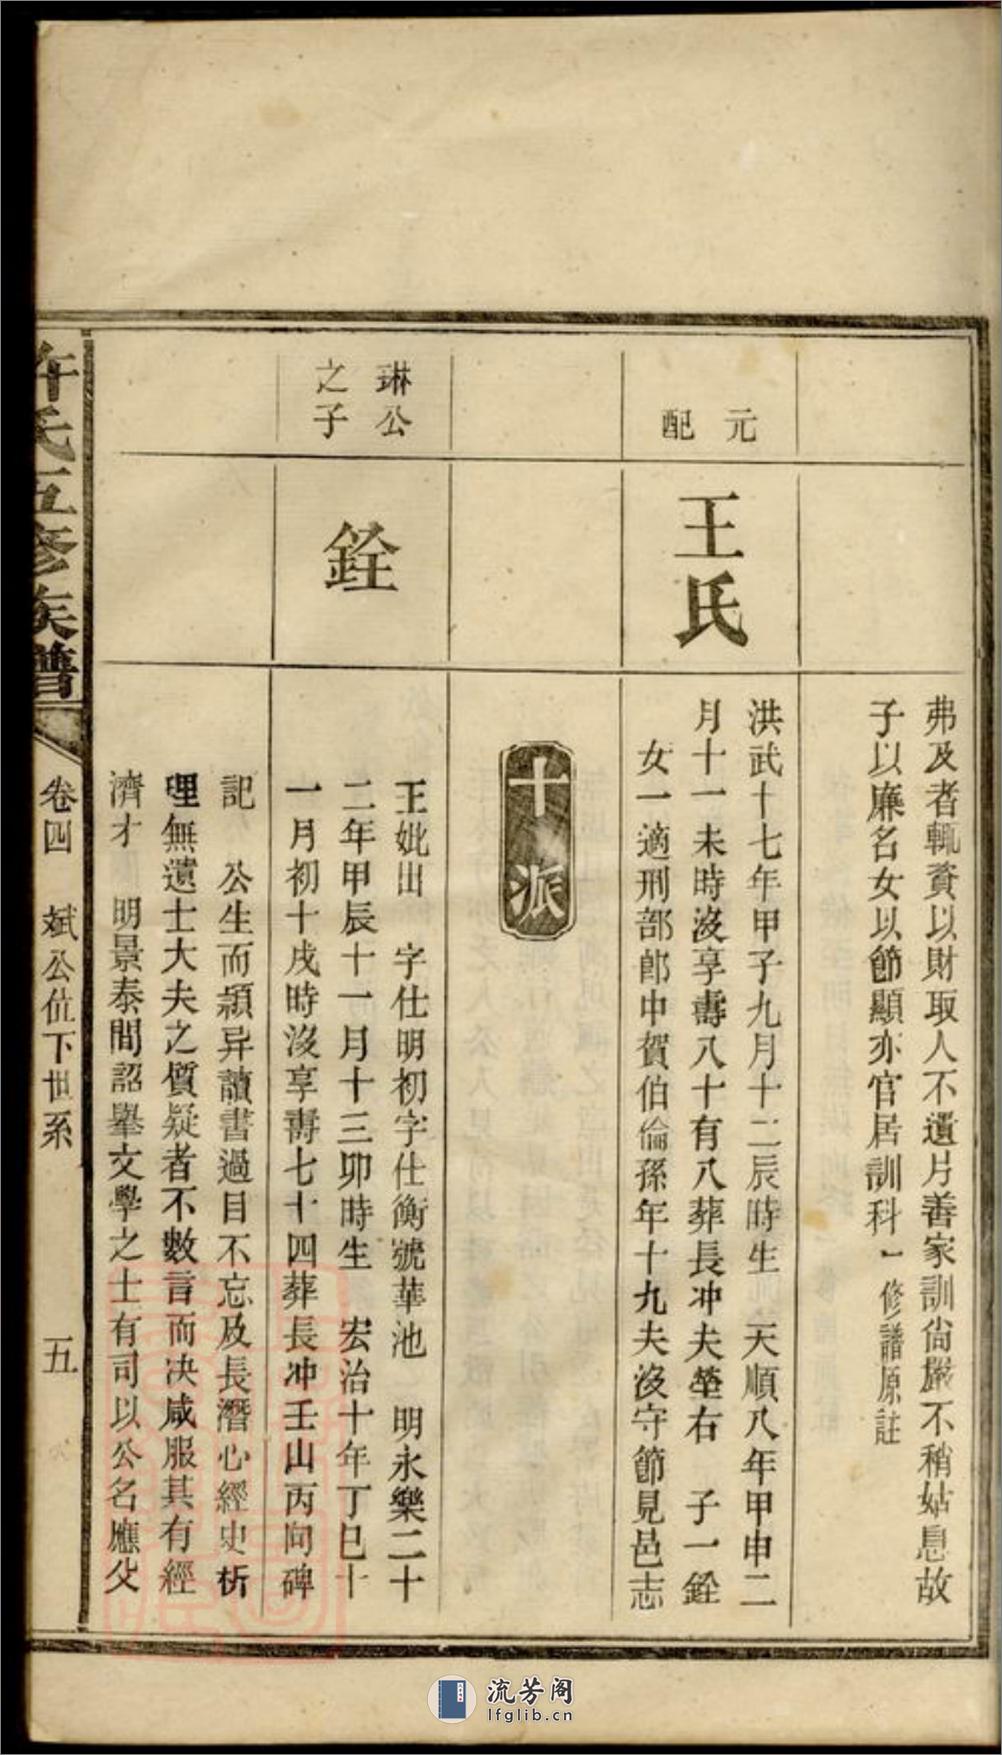 弗及者輒賚以財取人不遺片善家訓尚嚴不稍姑息故
子以廉名女以節顯亦官居訓科一修譜原註
元配
王氏
洪武十七年甲子九月十二辰時生 天順八年甲申二
月十一未時沒享壽八十有八葬長冲夫塋右 子一銓
女一適刑部郎中賀伯倫孫年十九夫沒守節見邑志
十派
琳公
之子
銓
王妣出 字仕明初字仕衡號華池 明永樂二十
二年甲辰十一月十三卯時生 宏治十年丁巳十
一月初十戌時沒享壽七十四葬長冲壬山丙向碑
記 公生而頴异讀書過目不忘及長潛心經史析
理無遺士大夫之質疑者不數言而决咸服其有經
濟才 明景泰間詔舉文學之士有司以公名應父
許氏五修族譜
卷四 斌公位下世系 五
流芳阁
lfglib.cn